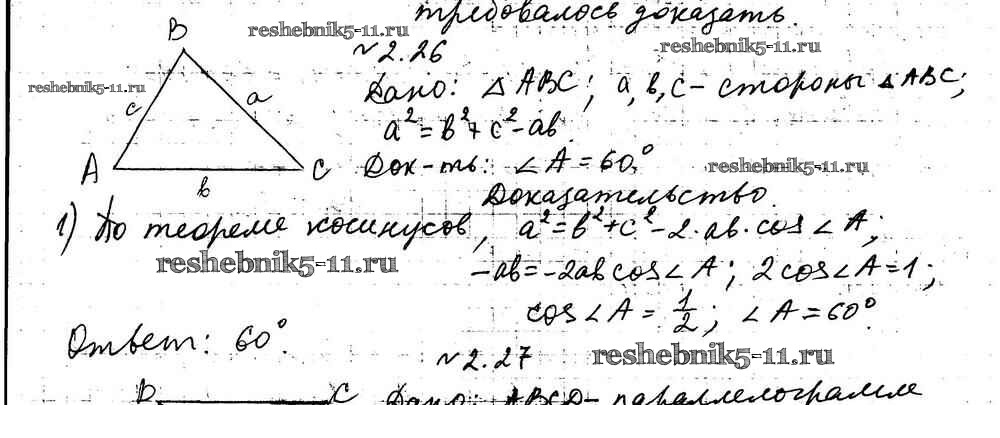 требовалось доказать.
reshebnik5-11.ru
reshebnik5-11.ru
№2.26
B
reshebnik5-11.ru
c
a
Дано: △ABC; a, в, c - стороны △ABC;
a² = в² + c² - ав.
A
в
C
Док-ть: ∠A = 60°.
reshebnik5-11.ru
Доказательство.
1) По теореме косинусов, a² = в² + c² - 2·ав·cos∠A;
reshebnik5-11.ru
-ав = -2ав cos∠A; 2cos∠A = 1;
cos∠A = 1/2; ∠A = 60°.
Ответ: 60°.
№2.27
reshebnik5-11.ru
B
C
Дано: ABCD - параллелограмм